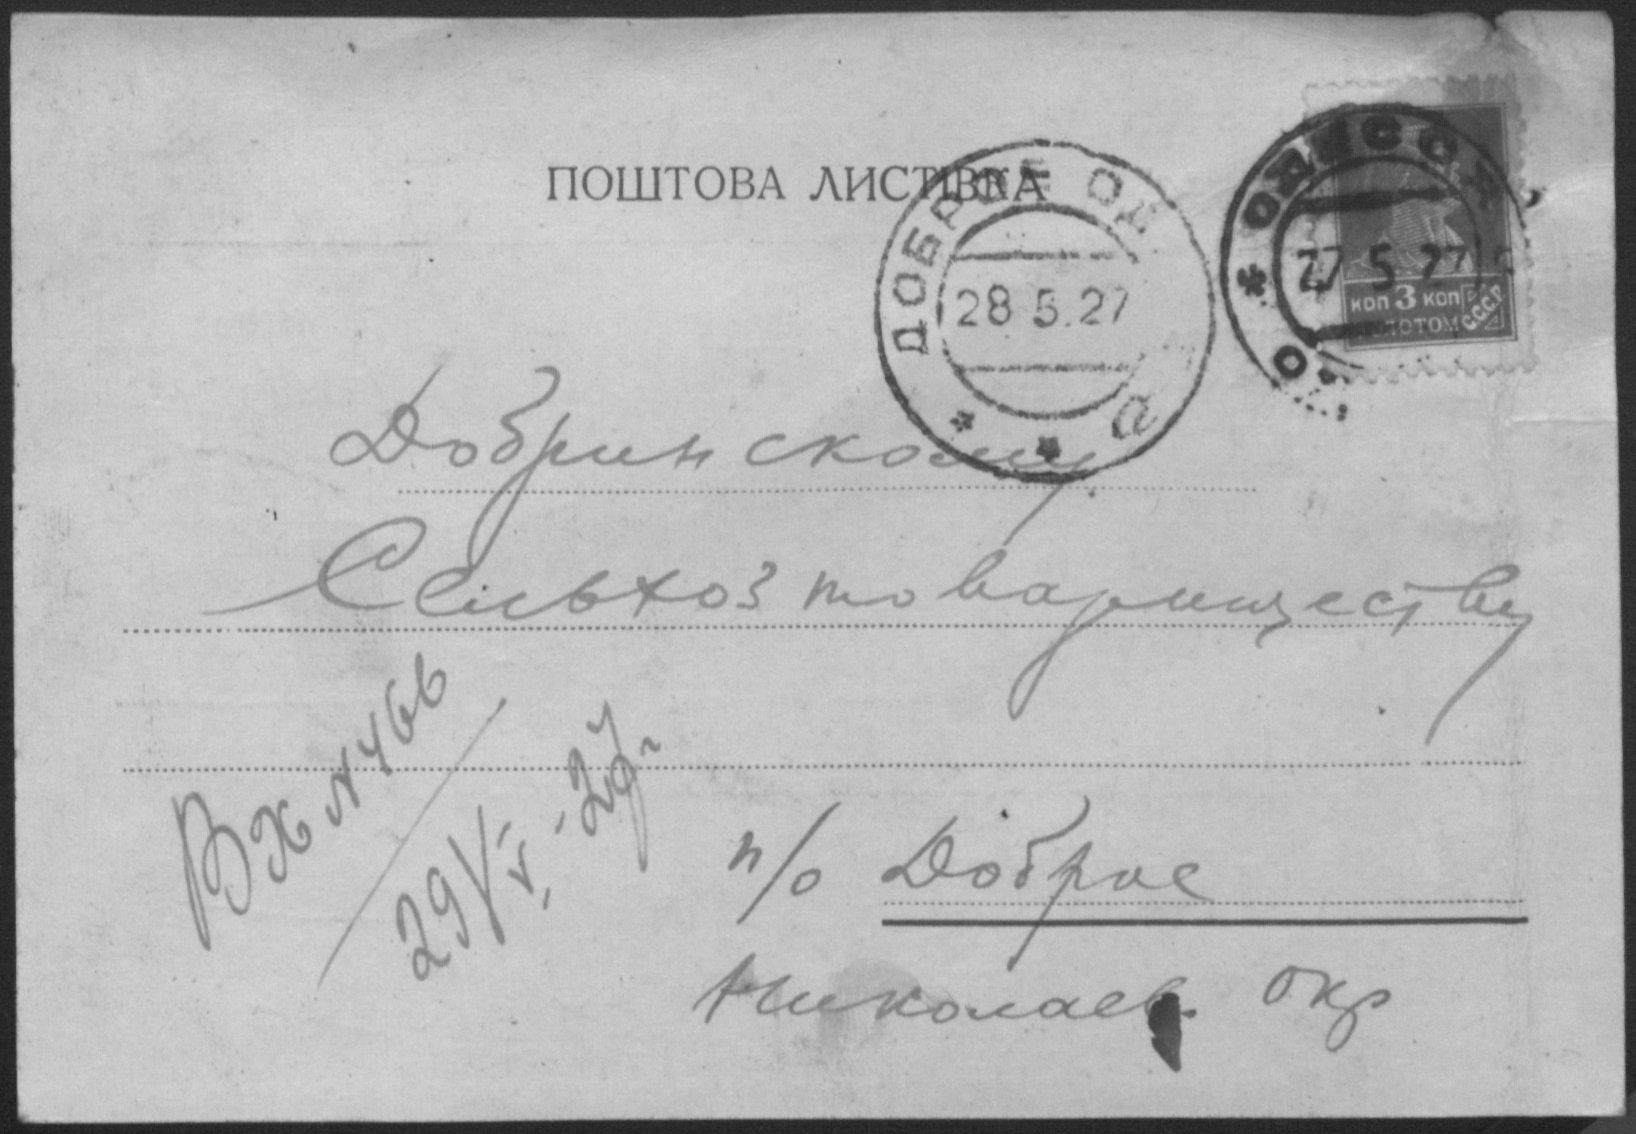 ПОШТОВА ЛИСТІВКА
ДОБРОЕ ОД
28 5.27
27 5 27
КОП 3 КОП
С.С.С.Р.
Добринскому
Сельхозтовариществу
Вх N 466
29/V -27 г
п/о Доброе
Николаев. окр